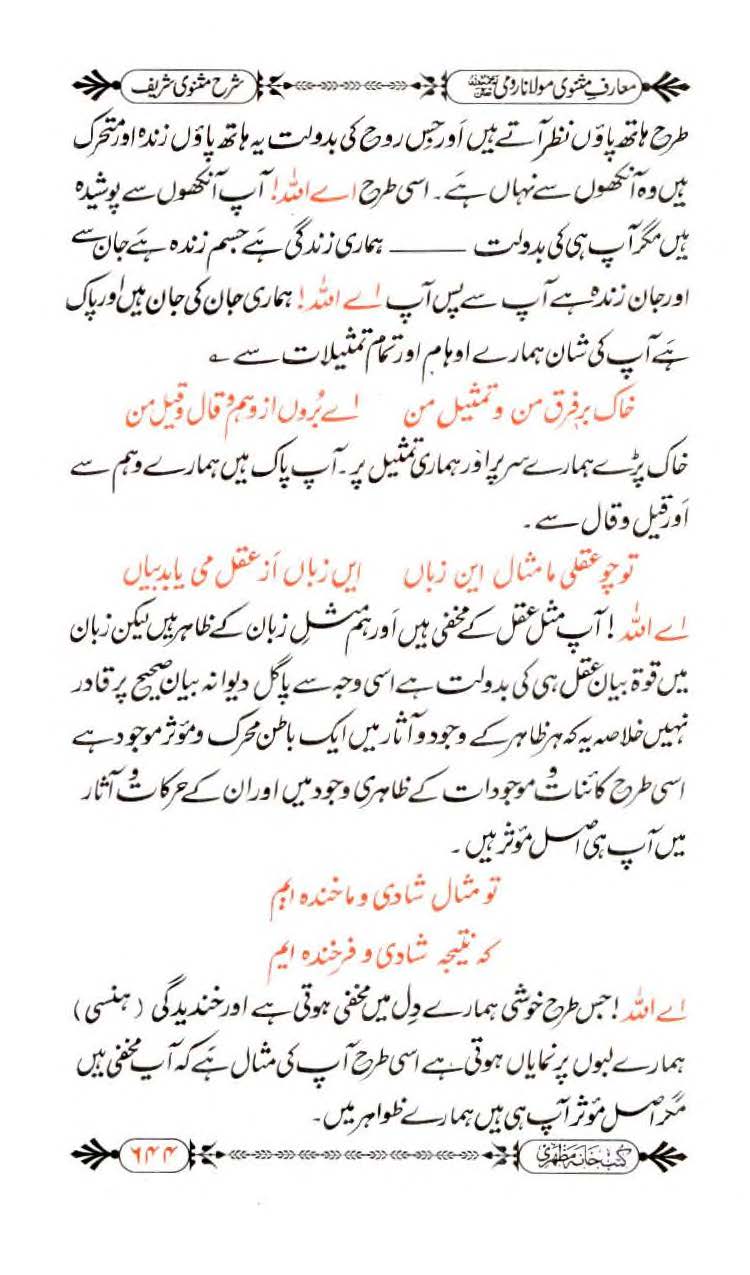 معارف مثنوی مولانا رومی رحمۃ اللہ علیہ
شرح مثنوی شریف
طرح ہاتھ پاؤں نظر آتے ہیں اَور جس روح کی بدولت یہ ہاتھ پاؤں زندہ اور متحرک
ہیں وہ آنکھوں سے نہاں ہَے۔ اسی طرح اے اللہ! آپ آنکھوں سے پوشیدہ
ہیں مگر آپ ہی کی بدولت ——— ہماری زندگی ہَے جسم زندہ ہَے جان سے
اور جان زندہ ہے آپ سے پس آپ اے اللہ! ہماری جان کی جان ہیں اور پاک
ہَے آپ کی شان ہمارے اوہام اور تمام تمثیلات سے ؎
خاک بر فرق من و تمثیل من اے بُروں از وہم و قال و قیل من
خاک پڑے ہمارے سر پر اَور ہماری تمثیل پر۔ آپ پاک ہیں ہمارے وہم سے
اَور قیل و قال سے۔
تو چو عقلی ما مثال این زباں ایں زباں اَز عقل می یابد بیاں
اے اللہ! آپ مثل عقل کے مخفی ہیں اَور ہم مثلِ زبان کے ظاہر ہیں لیکن زبان
میں قوۃ بیان عقل ہی کی بدولت ہے اسی وجہ سے پاگل دیوانہ بیان صحیح پر قادر
نہیں خلاصہ یہ کہ ہر ظاہر کے وجود و آثار میں ایک باطن محرک و مؤثر موجود ہے
اسی طرح کائنات و موجودات کے ظاہری وجود میں اور ان کے حرکات و آثار
میں آپ ہی اصل مؤثر ہیں۔
تو مثال شادی و ما خندہ ایم
کہ نتیجہ شادی و فرخندہ ایم
اے اللہ! جس طرح خوشی ہمارے دِل میں مخفی ہوتی ہے اور خندیدگی (ہنسی)
ہمارے لبوں پر نمایاں ہوتی ہے اسی طرح آپ کی مثال ہَے کہ آپ مخفی ہیں
مگر اصل مؤثر آپ ہی ہیں ہمارے ظواہر میں۔
کتب خانہ مظہری
۶۴۴